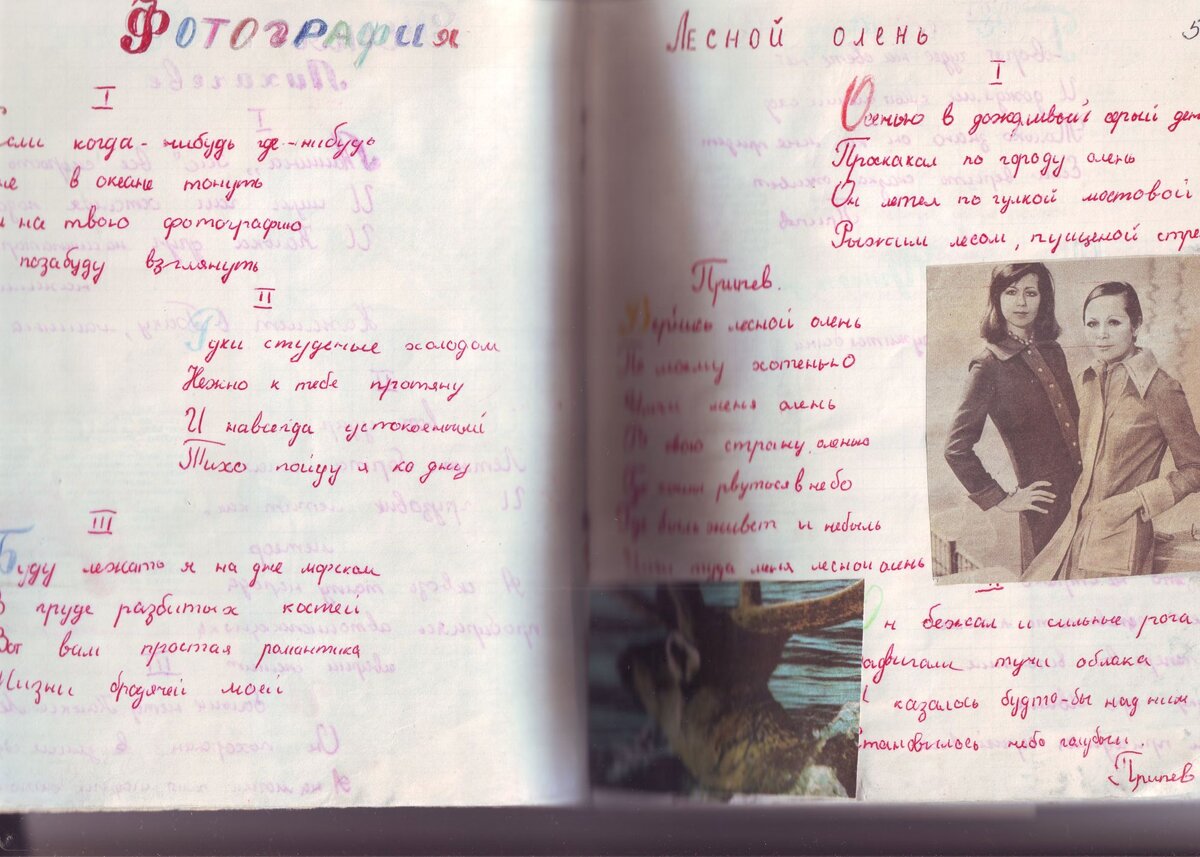 Фотография
I
сли когда-нибудь где-нибудь
не в океане тонуть
на твою фотографию
позабуду взглянуть
II
Руки студеные холодом
Нежно к тебе протяну
И навсегда успокоенный
Тихо пойду я ко дну
III
Буду лежать я на дне морском
В груде разбитых костей
Вот вам простая романтика
Жизни бродячей моей
Лесной олень
5
I
Осенью в дождливый серый ден
Проскакал по городу олень
Он летел по гулкой мостовой
Рыжим лесом, пущеной стре
Припев.
Вернись лесной олень
По моему хотенью
Умчи меня олень
В свою страну оленью
Где сосны рвуться в небо
Где быль живет и небыль
Умчи туда меня лесной олень
II
Он бежал и сильные рога
адвигали тучи облака
казалось будто-бы над ним
становилось небо голубым.
Припев